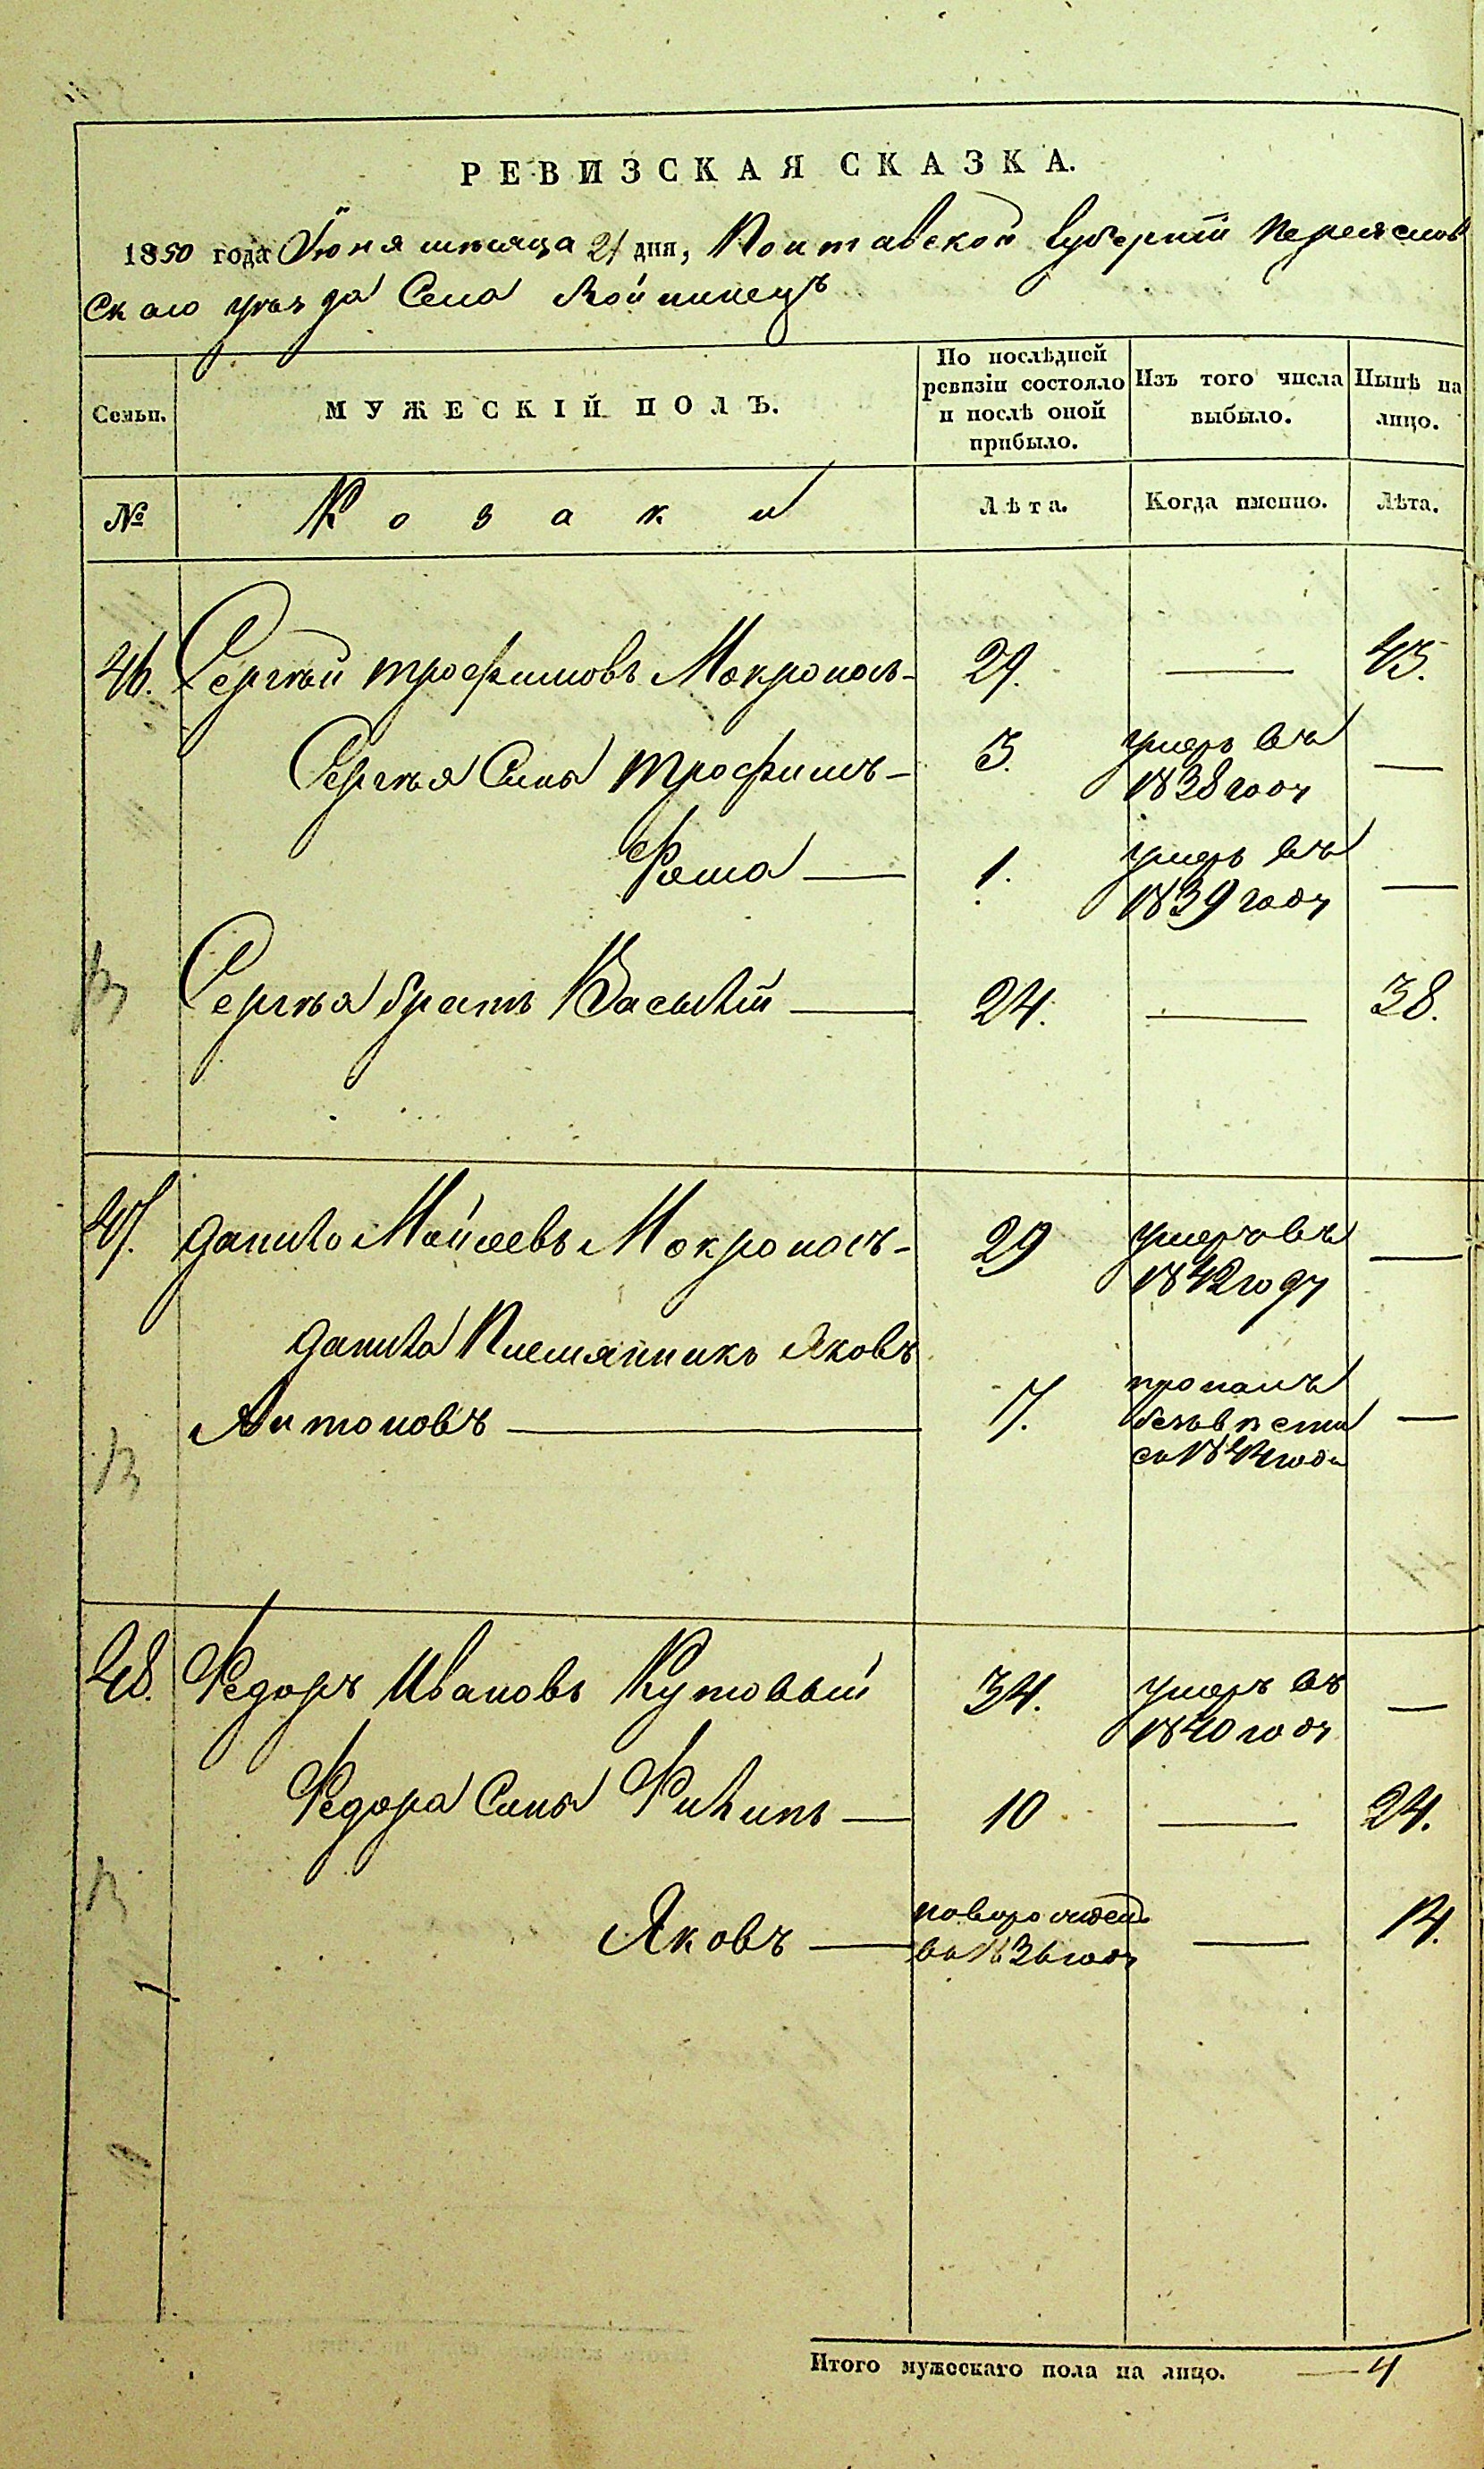 РЕВИЗСКАЯ СКАЗКА.
1850 года Іюня мѣсяца 21 дня, Полтавской Губерніи Переяслов
скаго уѣзда Села Войтинецъ
Семьи.
МУЖЕСКІЙ ПОЛЪ.
По послѣдней ревизіи состояло и послѣ оной прибыло.
Изъ того числа выбыло.
Нынѣ на лицо.
№
Козаки
Лѣта.
Когда именно.
Лѣта.
46. Сергѣй Трофимовъ Мокроносъ- 29. — 43.
Сергѣя Сынъ Трофимъ- 3. умеръ въ —
1838 году
Фома — 1. умеръ въ —
1839 году
Сергѣя братъ Василій — 24. — 38.
47. Данило Мойсеевъ Мокроносъ- 29 умеръ въ —
1842 году
Данила Племянникъ Яковъ
Антоновъ — 17. пропалъ —
безъ вѣсти
съ 1844 года
48. Федоръ Ивановъ Кутовый 34. умеръ въ —
1840 году
Федора Сынъ Филипъ — 10 — 24.
Яковъ — новорожден — 14.
въ 1836 году
Итого мужескаго пола на лицо. — 4